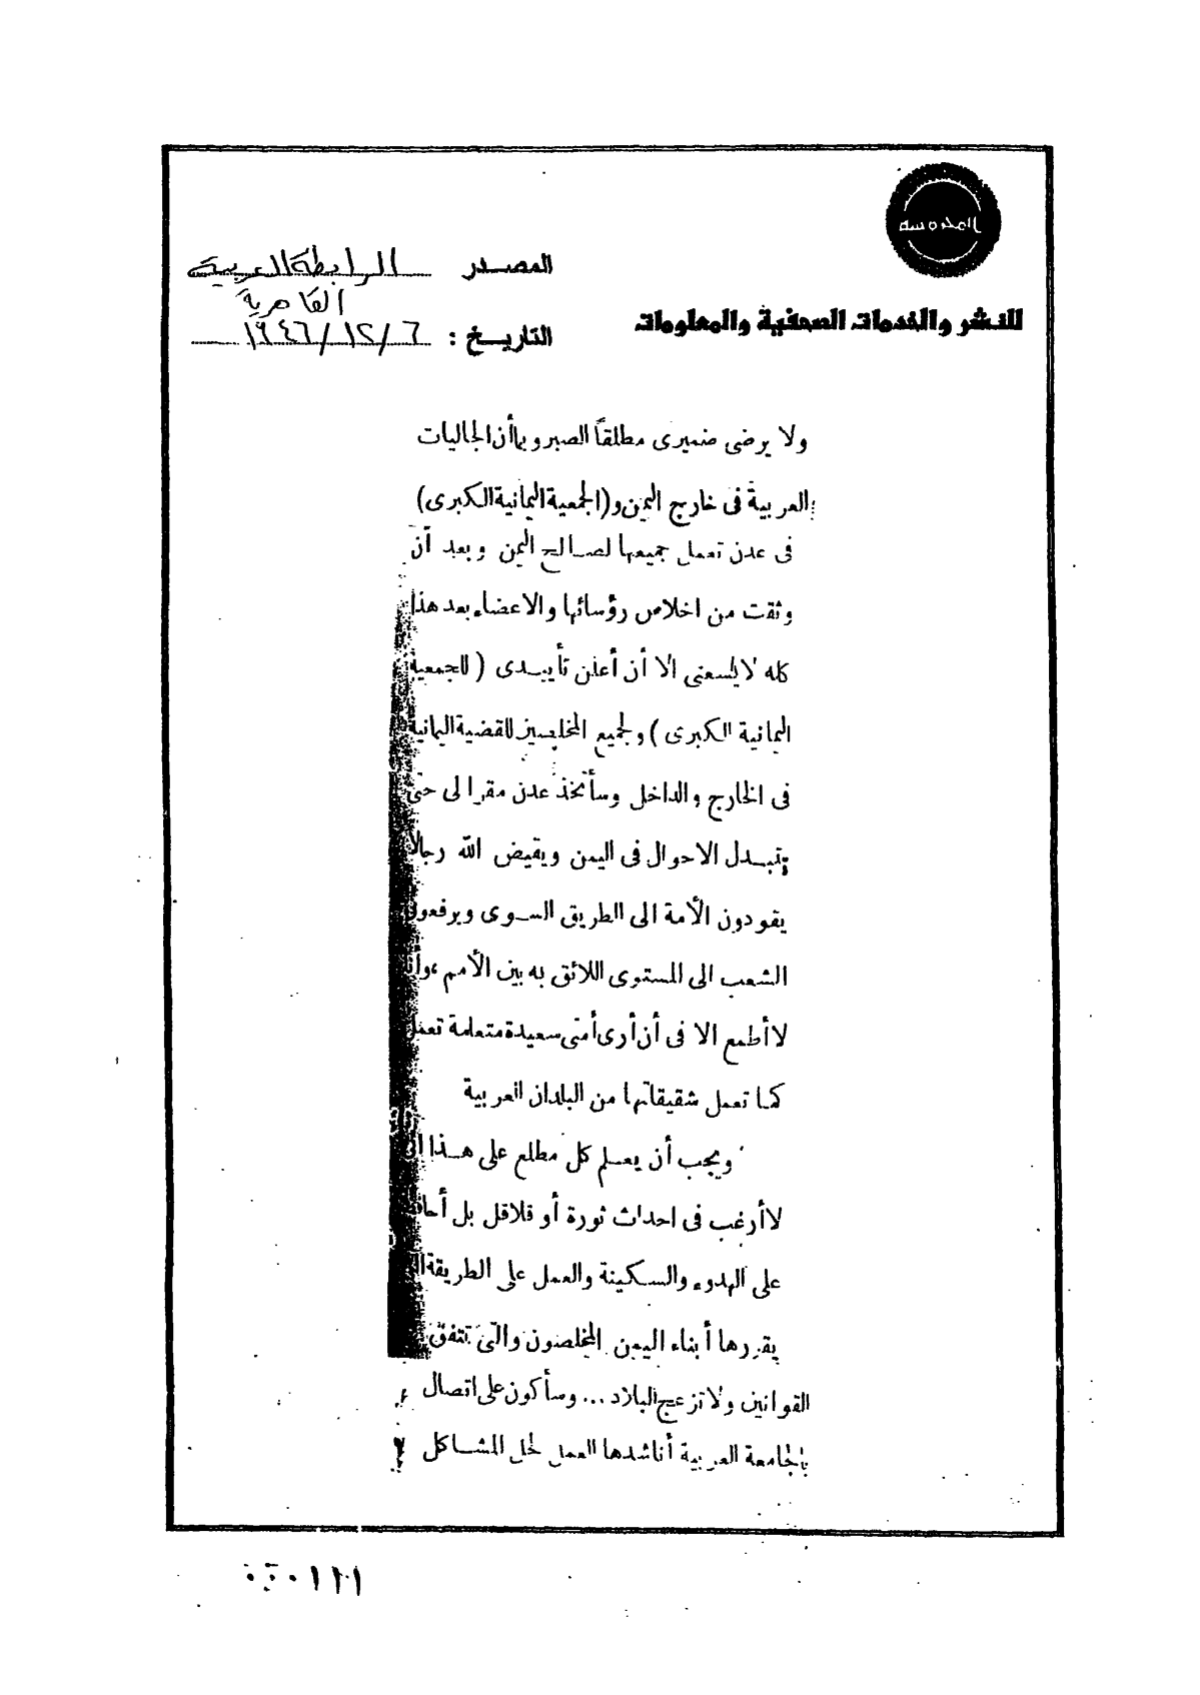 المصدر الرابطة العربية
القاهرية
للنشر والخدمات الصحفية والمعلومات
التاريخ : ٦/١٢/١٩٤٦
ولا يرضى ضميرى مطلقاً الصبر وبما أن الجاليات
العربية فى خارج اليمن و(الجمعية اليمانية الكبرى)
فى عدن تعمل جميعها لصالح اليمن وبعد أن
وثقت من اخلاص رؤسائها والاعضاء بعد هذا
كله لا يسعنى الا أن أعلن تأييدى ( للجمعية
اليمانية الكبرى ) ولجميع المخلصين للقضية اليمانية
فى الخارج والداخل وسأتخذ عدن مقرا لى حتى
يتبدل الاحوال فى اليمن ويقيض الله رجالا
يقودون الأمة الى الطريق السوى ويرفعون
الشعب الى المستوى اللائق به بين الأمم ، وأنا
لا أطمع الا فى أن أرى أمتى سعيدة متعلمة تعمل
كما تعمل شقيقاتها من البلدان العربية
ويجب أن يعلم كل مطلع على هذا
لا أرغب فى احداث ثورة أو قلاقل بل
على الهدوء والسكينة والعمل على الطريقة
يقررها أبناء اليمن المخلصون والتى تتفق
القوانين ولا تزعج البلاد ... وسأكون على اتصال
بالجامعة العربية أناشدها العمل لحل المشاكل